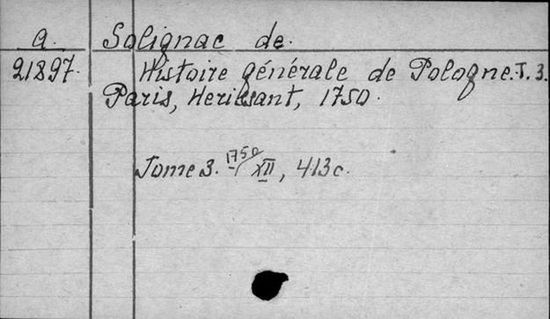 a. Solignac de.
21897. Histoire générale de Pologne. T. 3.
Paris, Herissant, 1750.
Tome 3. 1750/XII, 413c.